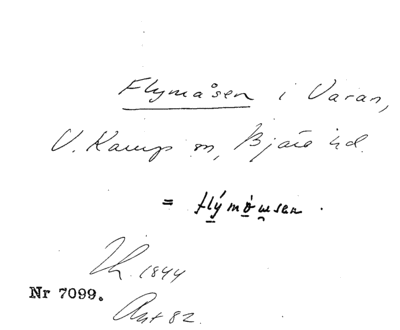 Flymåsen i Varan,
V. Karup sn, Bjäre hd.
= flýmòwsen.
1844
Nr 7099.
Ant 82.